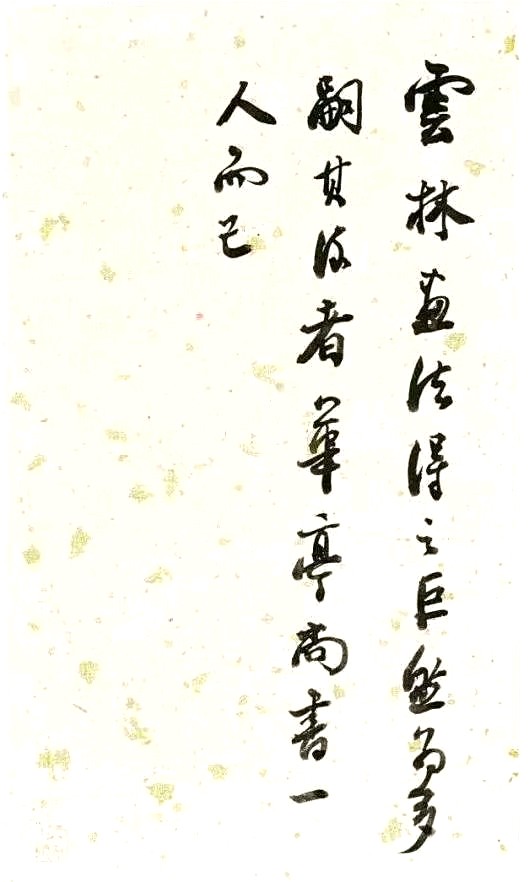 雲林畫法得之巨然為多
嗣其後者華亭尚書一
人而已